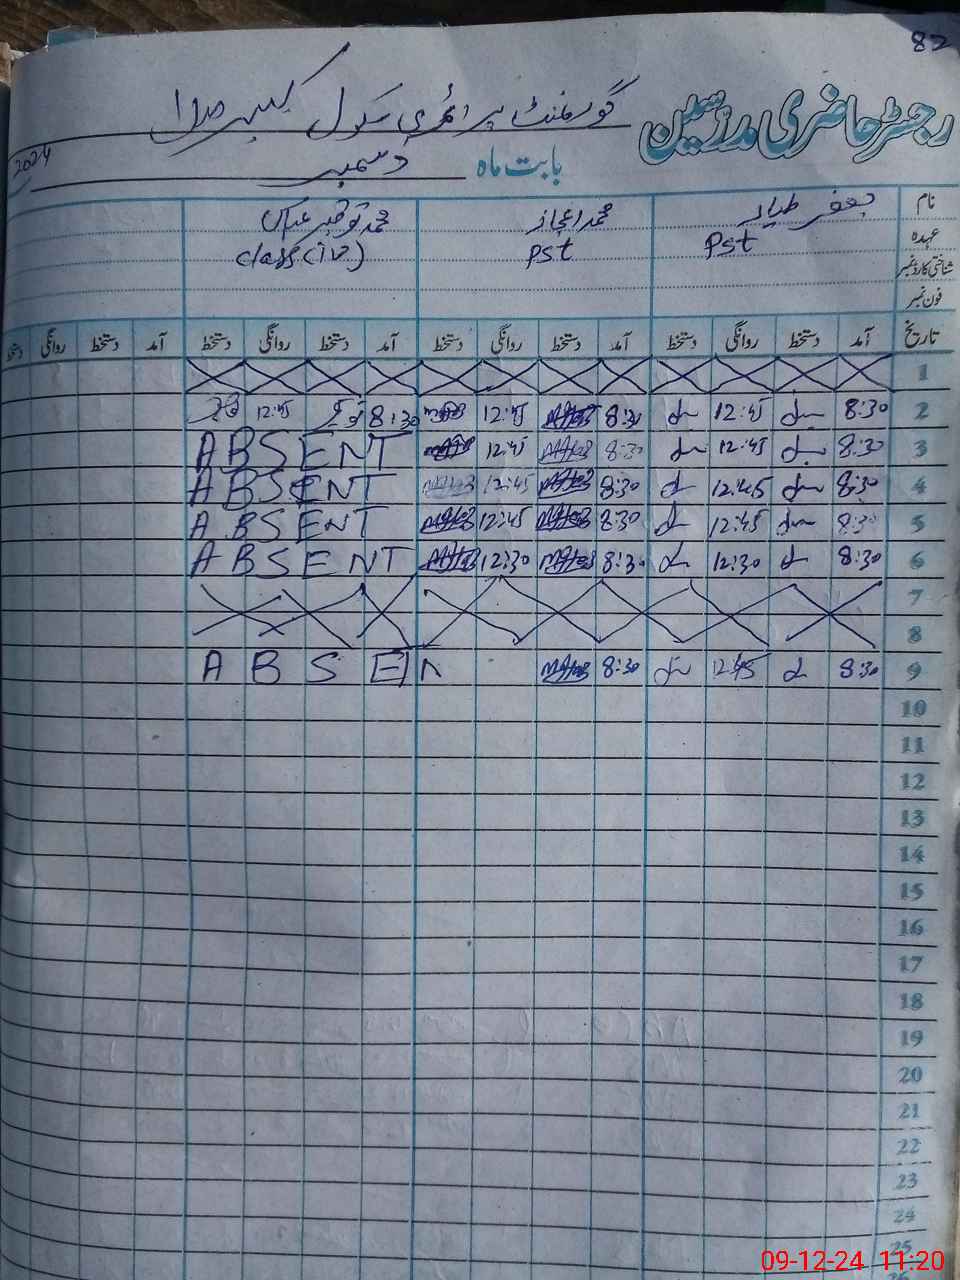 82
رجسٹر حاضری مدرسین گورنمنٹ پرائمری سکول
بابت ماہ دسمبر 2024
نام جعفر طیار محمد اعجاز محمد توقیر عباس
عہدہ Pst Pst class (iv)
شناختی کارڈ نمبر
فون نمبر
تاریخ آمد دستخط روانگی دستخط آمد دستخط روانگی دستخط آمد دستخط روانگی دستخط آمد دستخط روانگی دستخط
1
2 8:30 12:45 8:30 12:45 8:30 12:45
3 8:30 12:45 8:30 12:45 ABSENT
4 8:30 12:45 8:30 12:45 ABSENT
5 8:30 12:45 8:30 12:45 ABSENT
6 8:30 12:30 8:30 12:30 ABSENT
7
8
9 8:30 12:45 8:30 ABSEN
10
11
12
13
14
15
16
17
18
19
20
21
22
23
24
25
09-12-24 11:20